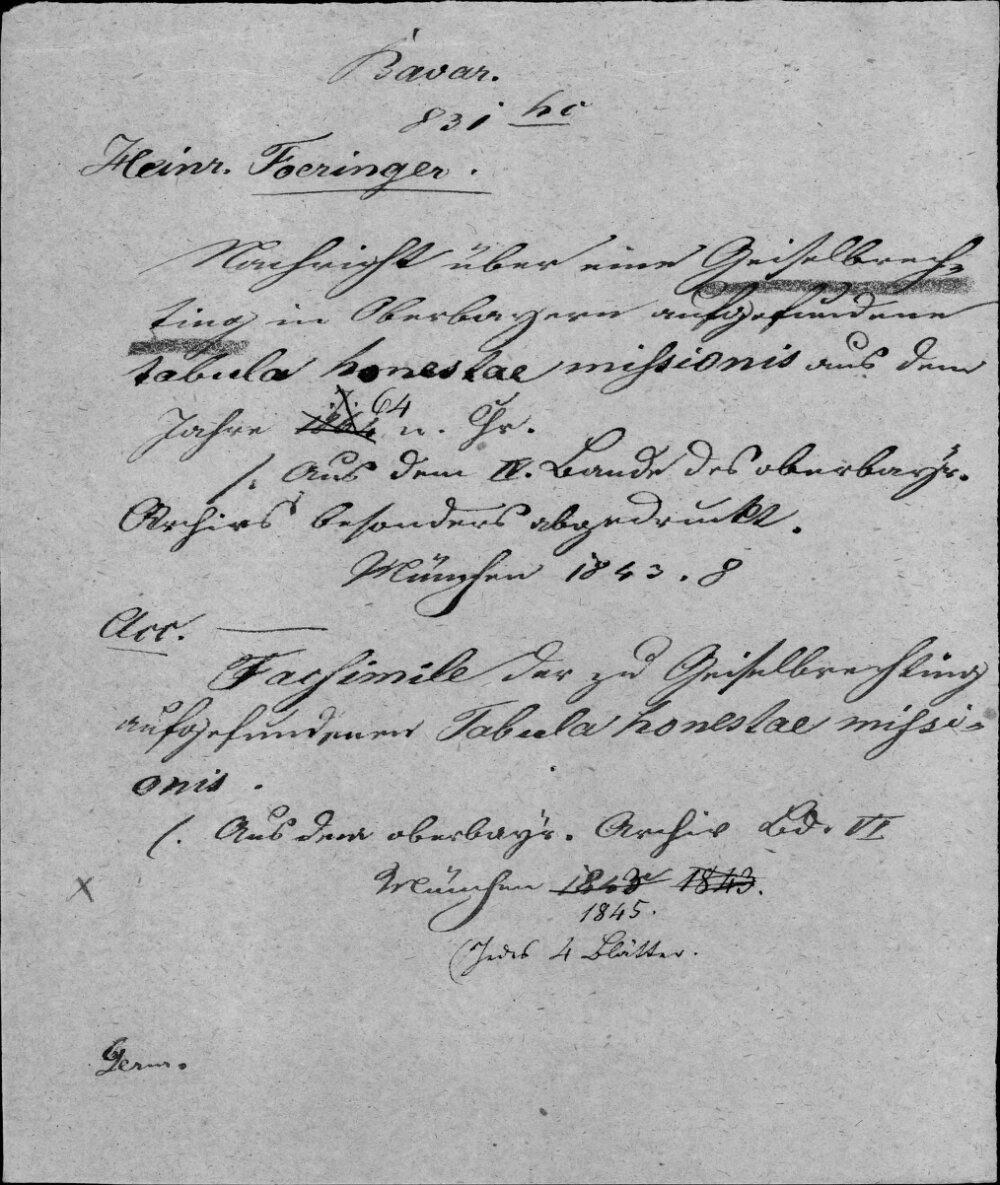 Bavar.
831 hc
Heinr. Foeringer.
Nachricht über eine Geiselbrech-
ting in Oberbayern aufgefundene
tabula honestae missionis aus dem
Jahre 64 n. Chr.
/: Aus dem IV. Bande des oberbayr.
Archivs besonders abgedruckt.
München 1843. 8
Acc.
Facsimile der zu Geiselbrechting
aufgefundenen Tabula honestae missi-
onis.
(. Aus dem oberbayr. Archiv Bd. VI
München 1843 1843.
1845.
(Jedes 4 Blätter.
Germ.